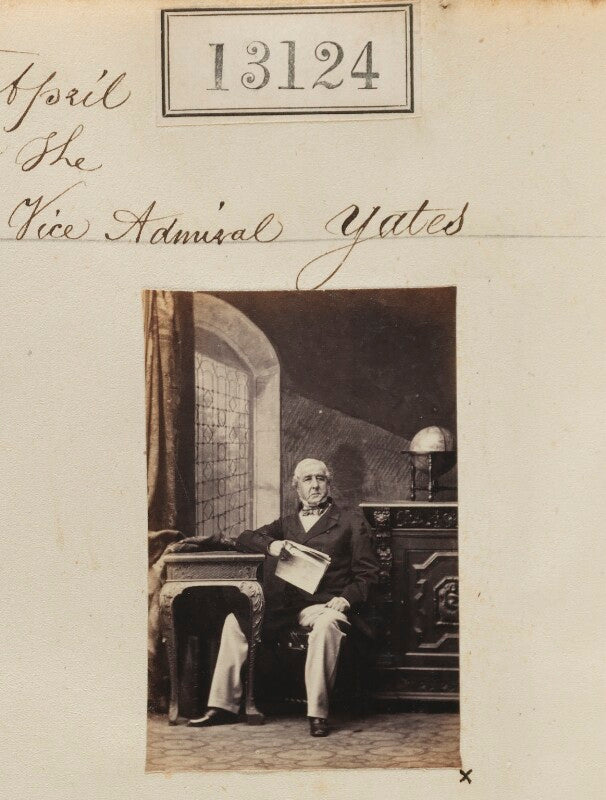 13124
April
The
Vice Admiral Yates
x